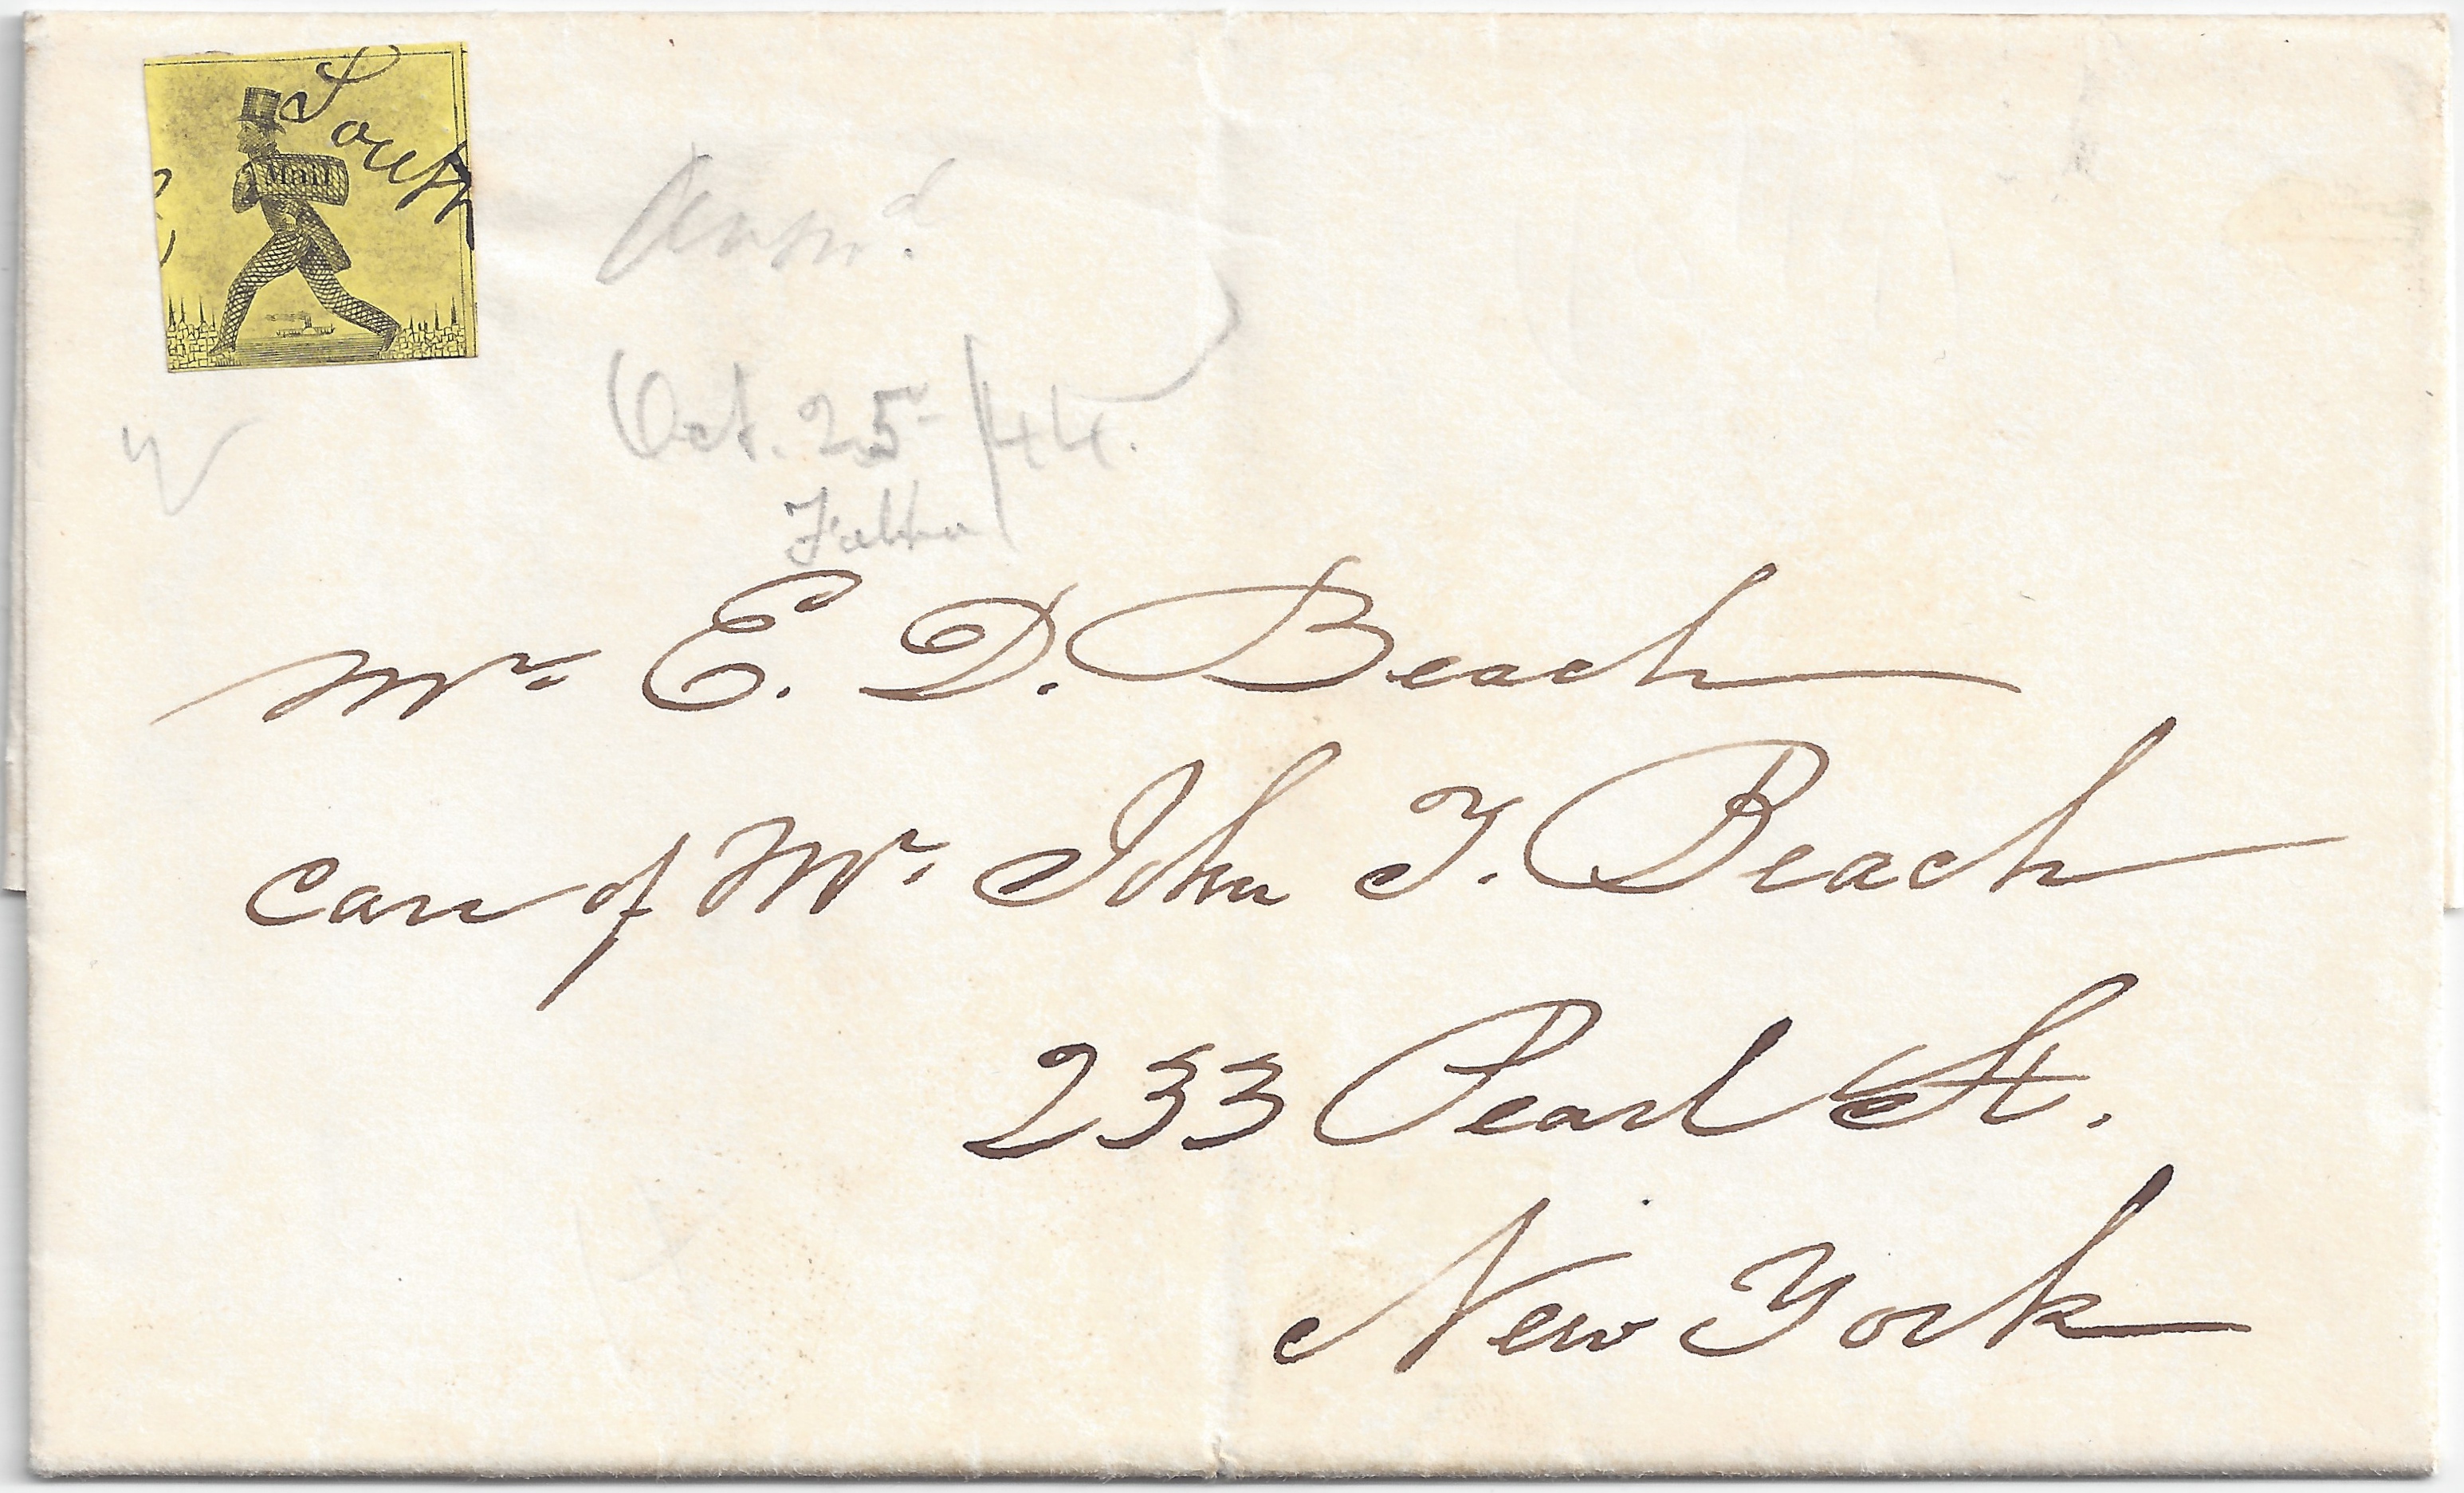 South
Mail
Answd.
Oct. 25 /44.
Mr. E. D. Beach
care of Mr. John T. Beach
233 Pearl St.
New York